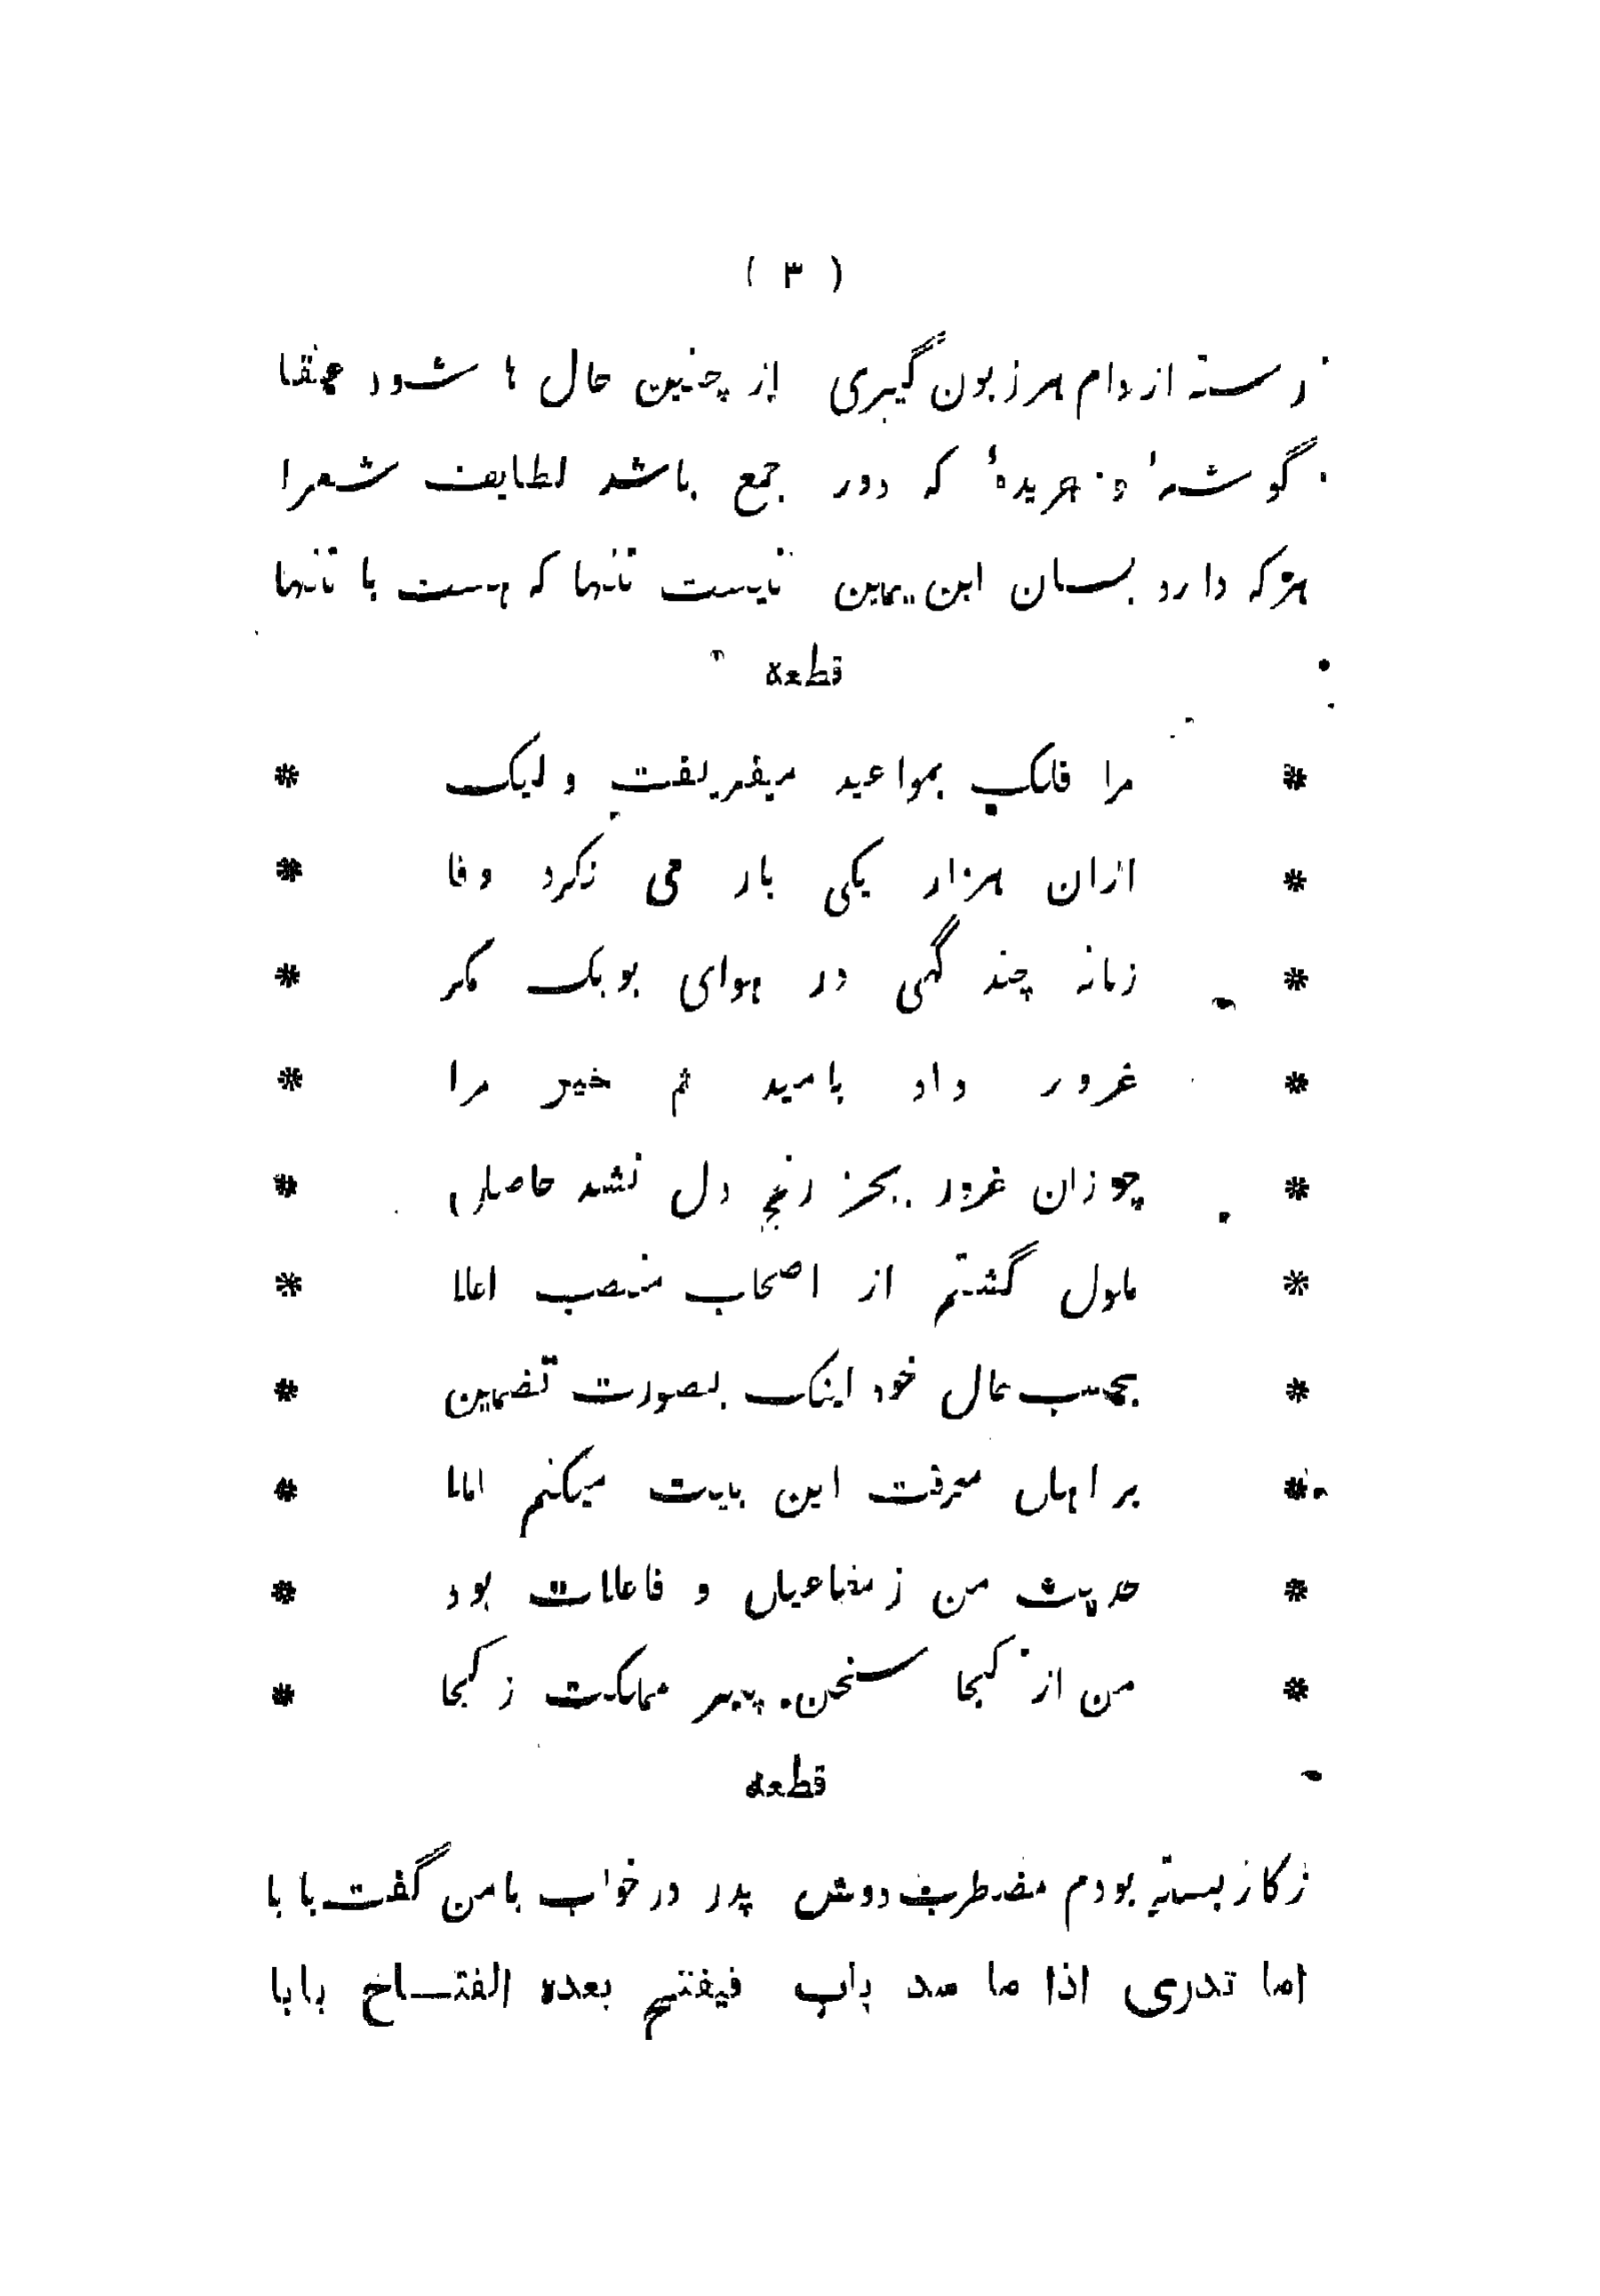 ( ٣ )
رسته از دام هر زبون گیری از چنین حال ها شود عنقا
گوشهٔ و جریدهٔ که درو جمع باشد لطایف شعرا
هرکه دارد بسان ابن یمین نیست تنها که هست با تنها
قطعه
* مرا فلک بمواعید میفریفت ولیک *
* ازان هزار یکی بار می نکرد وفا *
* زمانه چند گهی در هوای بوبک مکر *
* غرور داد بامید ثم خیر مرا *
* چو زان غرور بجز رنج دل نشد حاصل *
* ملول گشتم از اصحاب منصب اعلا *
* بحسب حال خود اینک بصورت تضمین *
* بر اهل معرفت این بیت میکنم املا *
* حدیث من ز مفاعیل و فاعلات بود *
* من از کجا سخن پیر مملکت ز کجا *
قطعه
ز کار بسته بودم مضطرب دوش پدر در خواب با من گفت بابا
اما تدری اذا ما سد باب فیفتح بعده الفتاح بابا